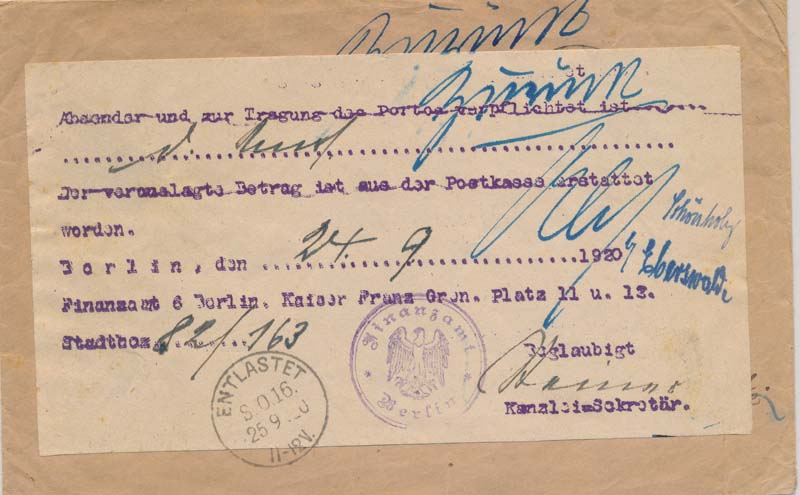 Zurück
Zurück
Absender und zur Tragung des Portos verpflichtet ist
d. Amt
Der verauslagte Betrag ist aus der Postkasse erstattet
worden.
Berlin, den 24. 9 1920
Schönholz
b/ Eberswalde
Finanzamt 6 Berlin. Kaiser Franz Gren. Platz 11 u. 12.
Stadtbez 82/163
Finanzamt
Berlin
Beglaubigt
Kanzlei=Sekretär.
ENTLASTET
S.O.16.
25 9 20
11-12V.